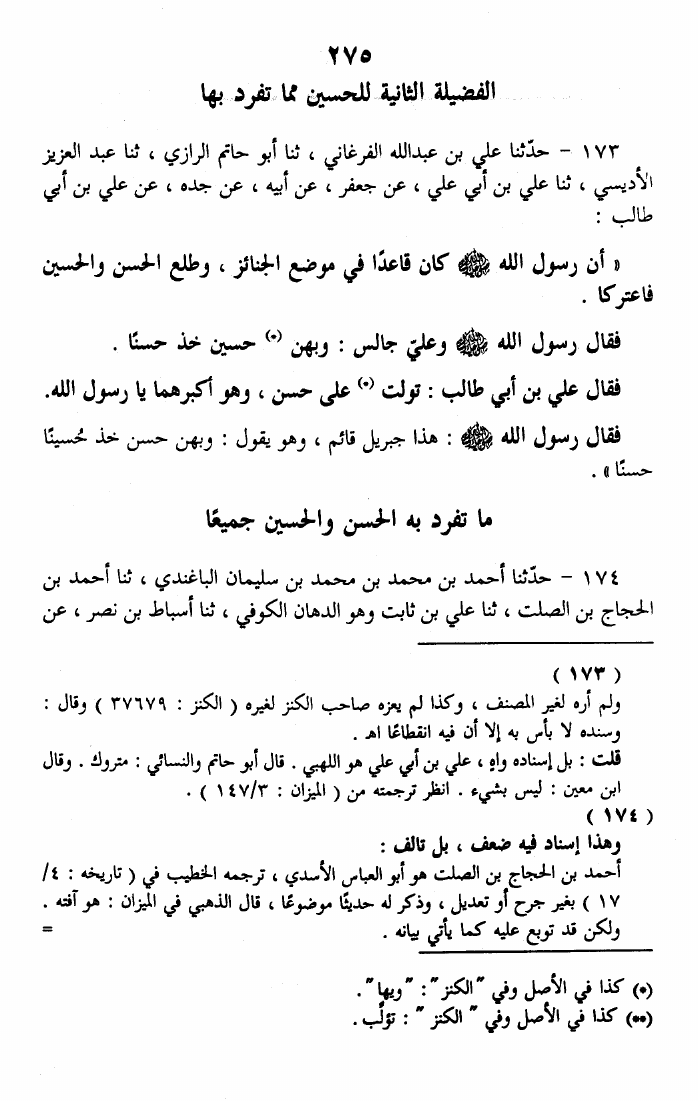 ٢٧٥
الفضيلة الثانية للحسين مما تفرد بها
١٧٣ - حدّثنا علي بن عبدالله الفرغاني ، ثنا أبو حاتم الرازي ، ثنا عبد العزيز
الأديسي ، ثنا علي بن أبي علي ، عن جعفر ، عن أبيه ، عن جده ، عن علي بن أبي
طالب :
« أن رسول الله ﷺ كان قاعدًا في موضع الجنائز ، وطلع الحسن والحسين
فاعتركا .
فقال رسول الله ﷺ وعليّ جالس : وبهن (*) حسين خذ حسنًا .
فقال علي بن أبي طالب : تولت (*) على حسن ، وهو أكبرهما يا رسول الله.
فقال رسول الله ﷺ : هذا جبريل قائم ، وهو يقول : وبهن حسن خذ حُسينًا
حسنًا » .
ما تفرد به الحسن والحسين جميعًا
١٧٤ - حدّثنا أحمد بن محمد بن محمد بن سليمان الباغندي ، ثنا أحمد بن
الحجاج بن الصلت ، ثنا علي بن ثابت وهو الدهان الكوفي ، ثنا أسباط بن نصر ، عن
( ١٧٣ )
ولم أره لغير المصنف ، وكذا لم يعزه صاحب الكنز لغيره ( الكنز : ٣٧٦٧٩ ) وقال :
وسنده لا بأس به إلا أن فيه انقطاعًا اهـ .
قلت : بل إسناده واهٍ ، علي بن أبي علي هو اللهبي . قال أبو حاتم والنسائي : متروك . وقال
ابن معين : ليس بشيء . انظر ترجمته من ( الميزان : ١٤٧/٣ ) .
( ١٧٤ )
وهذا إسناد فيه ضعف ، بل تالف :
أحمد بن الحجاج بن الصلت هو أبو العباس الأسدي ، ترجمه الخطيب في ( تاريخه : ٤/
١٧ ) بغير جرح أو تعديل ، وذكر له حديثًا موضوعًا ، قال الذهبي في الميزان : هو آفته .
ولكن قد توبع عليه كما يأتي بيانه . =
(*) كذا في الأصل وفي "الكنز" : "ويها" .
(**) كذا في الأصل وفي " الكنز " : تؤلّب .